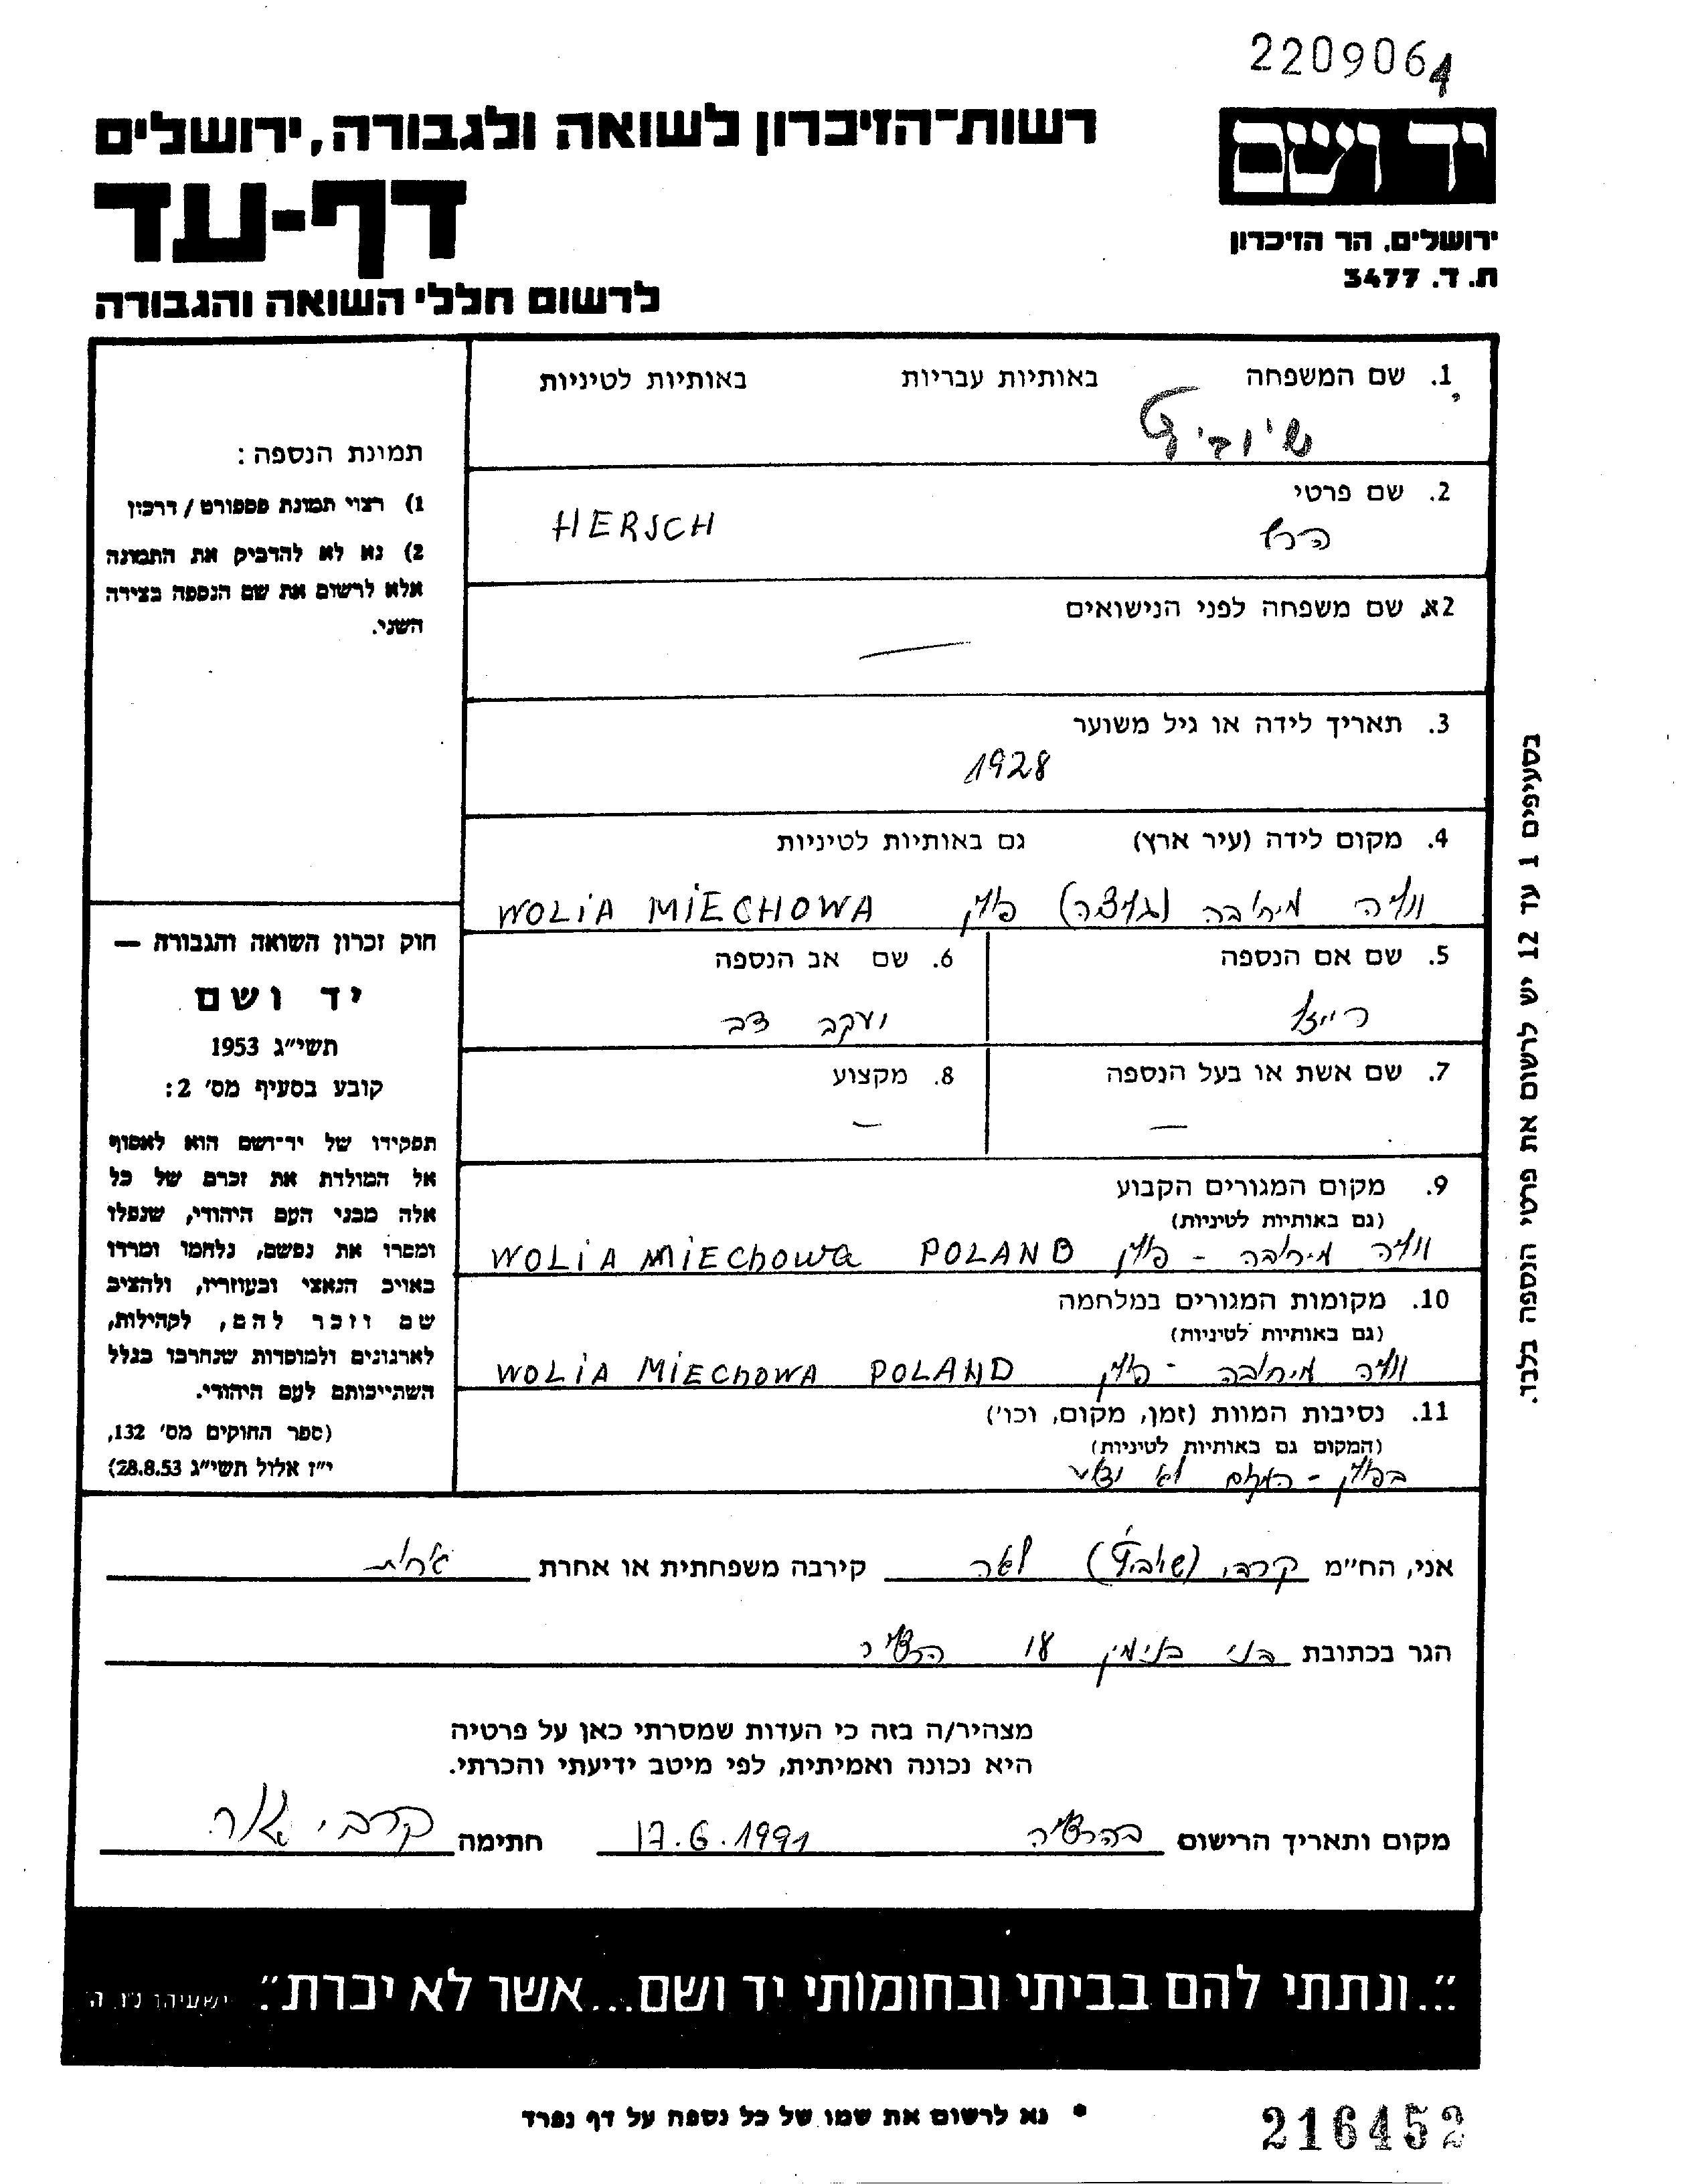 2209064
יד ושם
ירושלים, הר הזיכרון
ת. ד. 3477
רשות-הזיכרון לשואה ולגבורה, ירושלים
דף-עד
לרשום חללי השואה והגבורה
1. שם המשפחה באותיות עבריות באותיות לטיניות
2. שם פרטי
הרש HERSCH
2א. שם משפחה לפני הנישואים
—
3. תאריך לידה או גיל משוער
1928
4. מקום לידה (עיר ארץ) גם באותיות לטיניות
ווליה מיחובה פולין WOLiA MiECHOWA
5. שם אם הנספה
רייזל
6. שם אב הנספה
יעקב דב
7. שם אשת או בעל הנספה
—
8. מקצוע
—
9. מקום המגורים הקבוע
(גם באותיות לטיניות)
ווליה מיחובה - פולין WOLiA MiEChOWa POLAND
10. מקומות המגורים במלחמה
(גם באותיות לטיניות)
ווליה מיחובה - פולין WOLiA MiEChOWA POLAND
11. נסיבות המוות (זמן, מקום, וכו')
(המקום גם באותיות לטיניות)
בפולין - המקום לא ידוע
תמונת הנספה:
1) רצוי תמונת פספורט / דרכון
2) נא לא להדביק את התמונה
אלא לרשום את שם הנספה בצידה
השני.
חוק זכרון השואה והגבורה —
יד ושם
תשי"ג 1953
קובע בסעיף מס' 2:
תפקידו של יד-ושם הוא לאסוף
אל המולדת את זכרם של כל
אלה מבני העם היהודי, שנפלו
ומסרו את נפשם, נלחמו ומרדו
באויב הנאצי ובעוזריו, ולהציב
שם וזכר להם, לקהילות,
לארגונים ולמוסדות שנחרבו בגלל
השתייכותם לעם היהודי.
(ספר החוקים מס' 132,
י"ז אלול תשי"ג 28.8.53)
בסעיפים 1 עד 12 יש לרשום את פרטי הנספה בלבד.
אני, הח"מ לאה קירבה משפחתית או אחרת אחות
הגר בכתובת בני בנימין 18 הרצליה
מצהיר/ה בזה כי העדות שמסרתי כאן על פרטיה
היא נכונה ואמיתית, לפי מיטב ידיעתי והכרתי.
מקום ותאריך הרישום בהרצליה 17.6.1991 חתימה
"...ונתתי להם בביתי ובחומותי יד ושם...אשר לא יכרת". ישעיהו נ"ו ה'
* נא לרשום את שמו של כל נספה על דף נפרד
216452